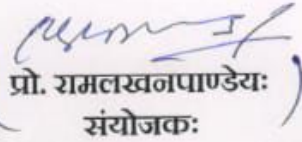 प्रो. रामलखनपाण्डेयः
संयोजकः